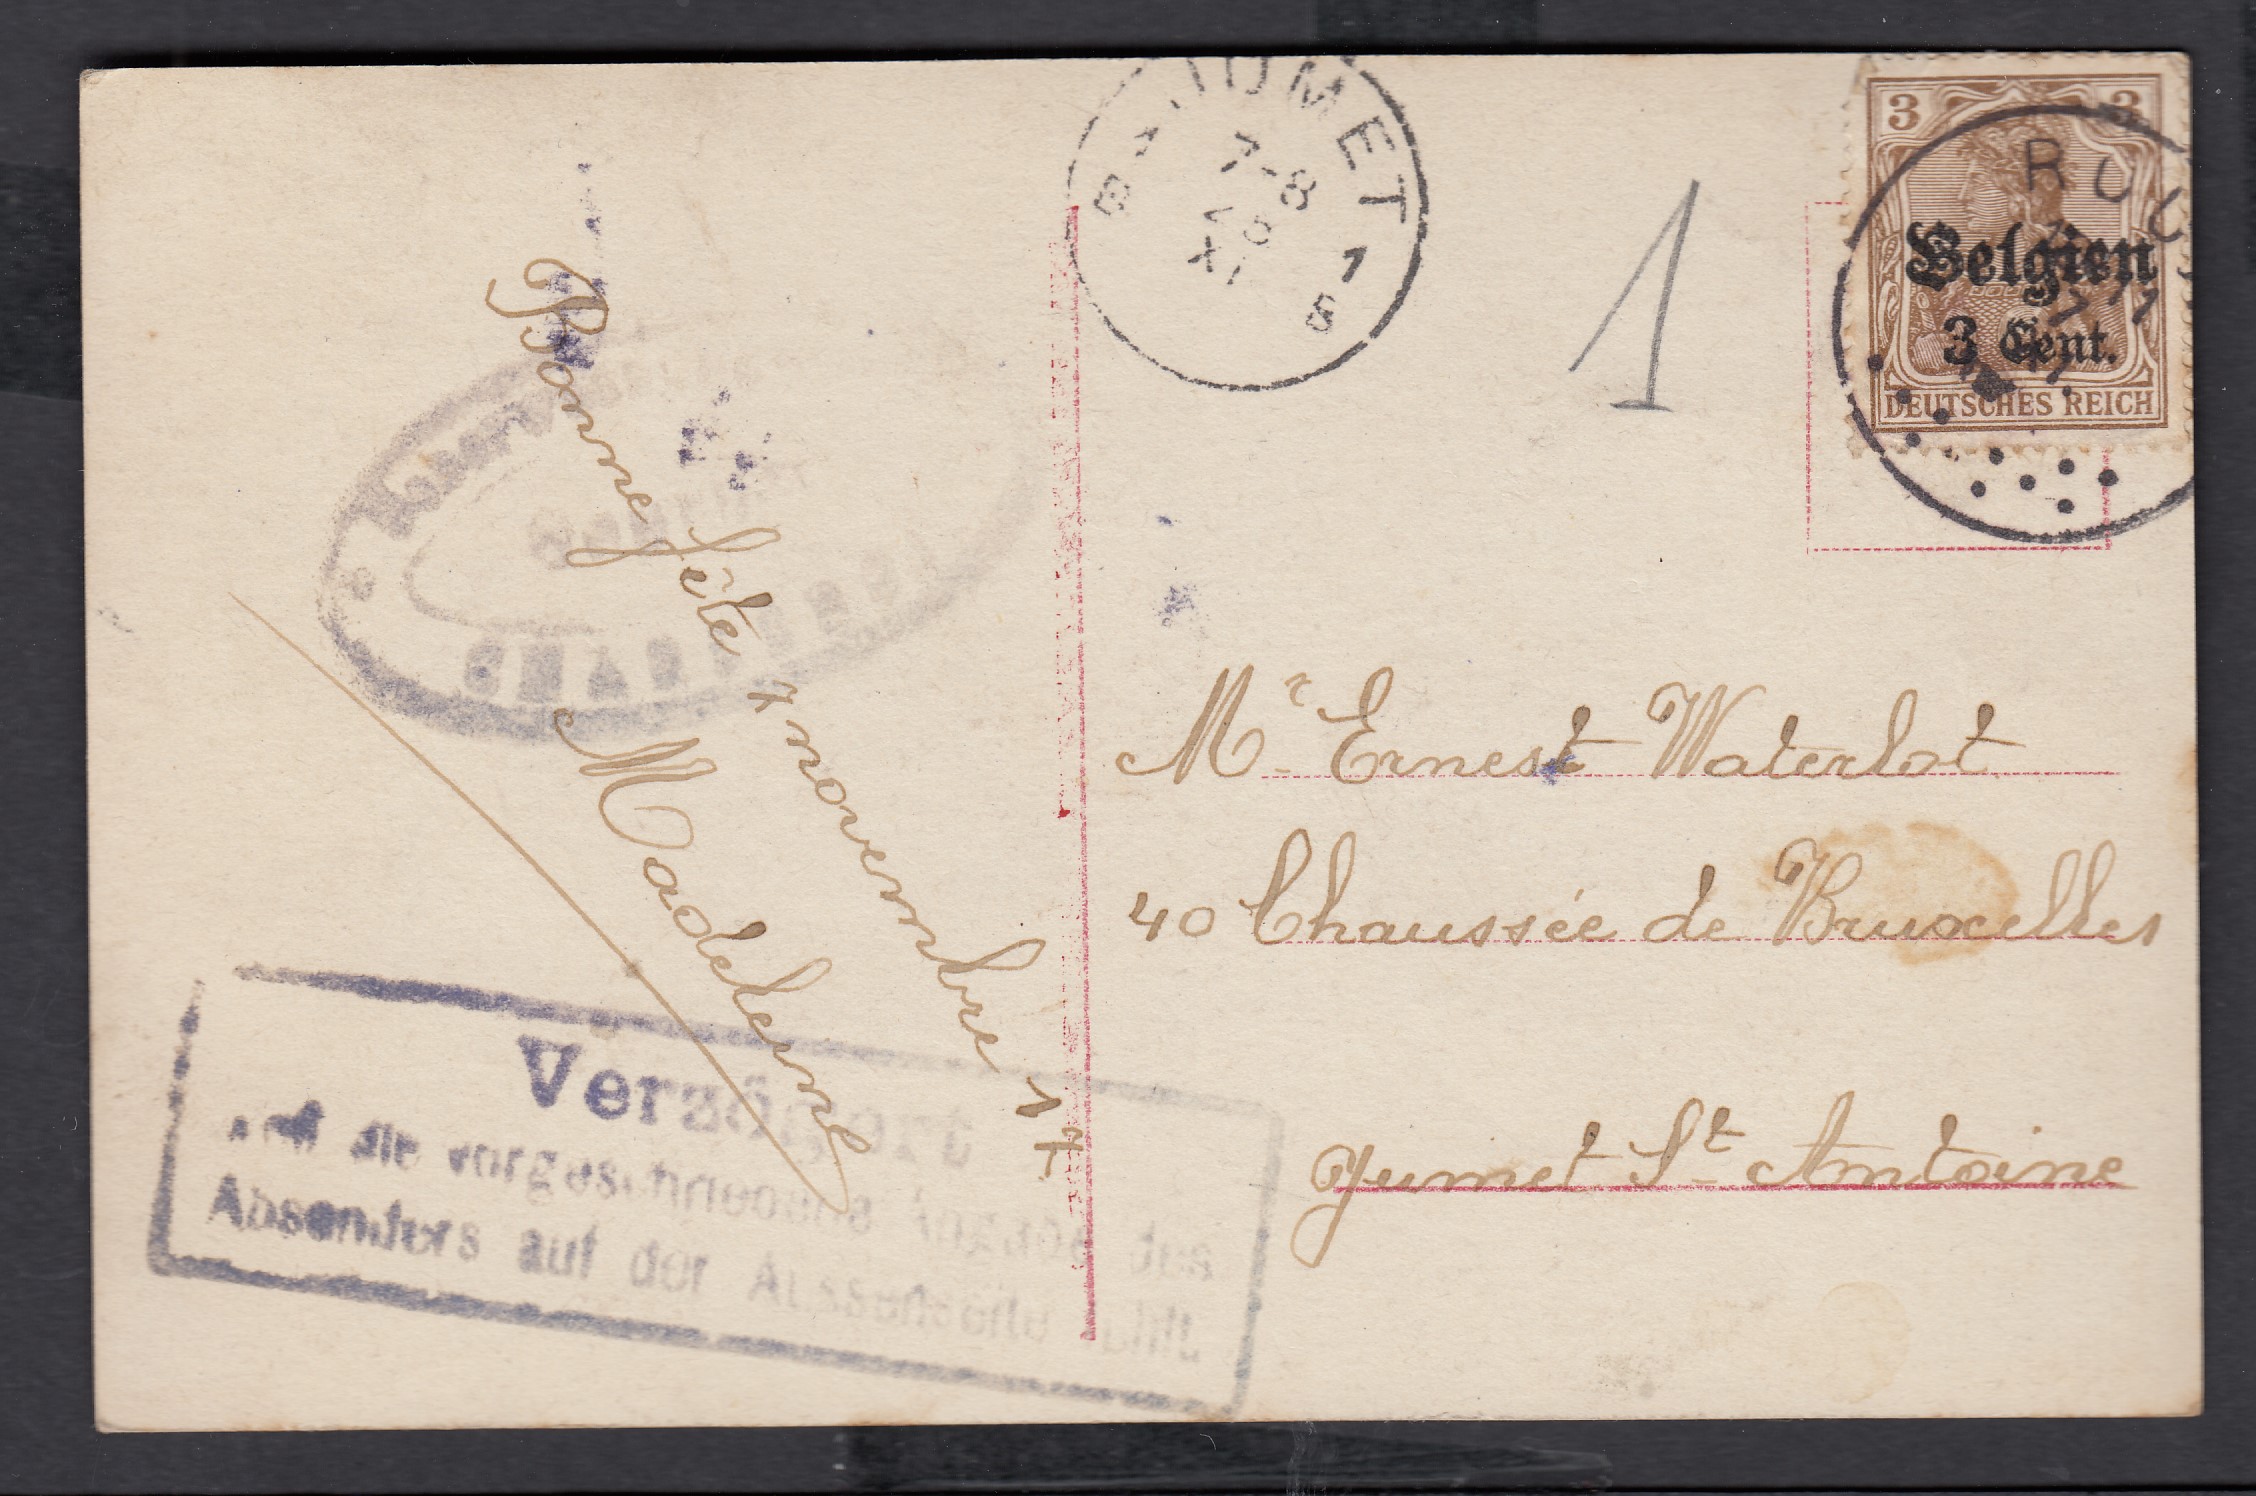 JUMET
7-8
XI
3 3
Belgien
3 Cent.
DEUTSCHES REICH
1
Bonne fête 7 novembre 17
Madeleine
CHARLEROI
Mr Ernest Waterlot
40 Chaussée de Bruxelles
Jumet St Antoine
Verzögert
die vorgeschriebene Angabe des
Absenders auf der Aussenseite fehlt.